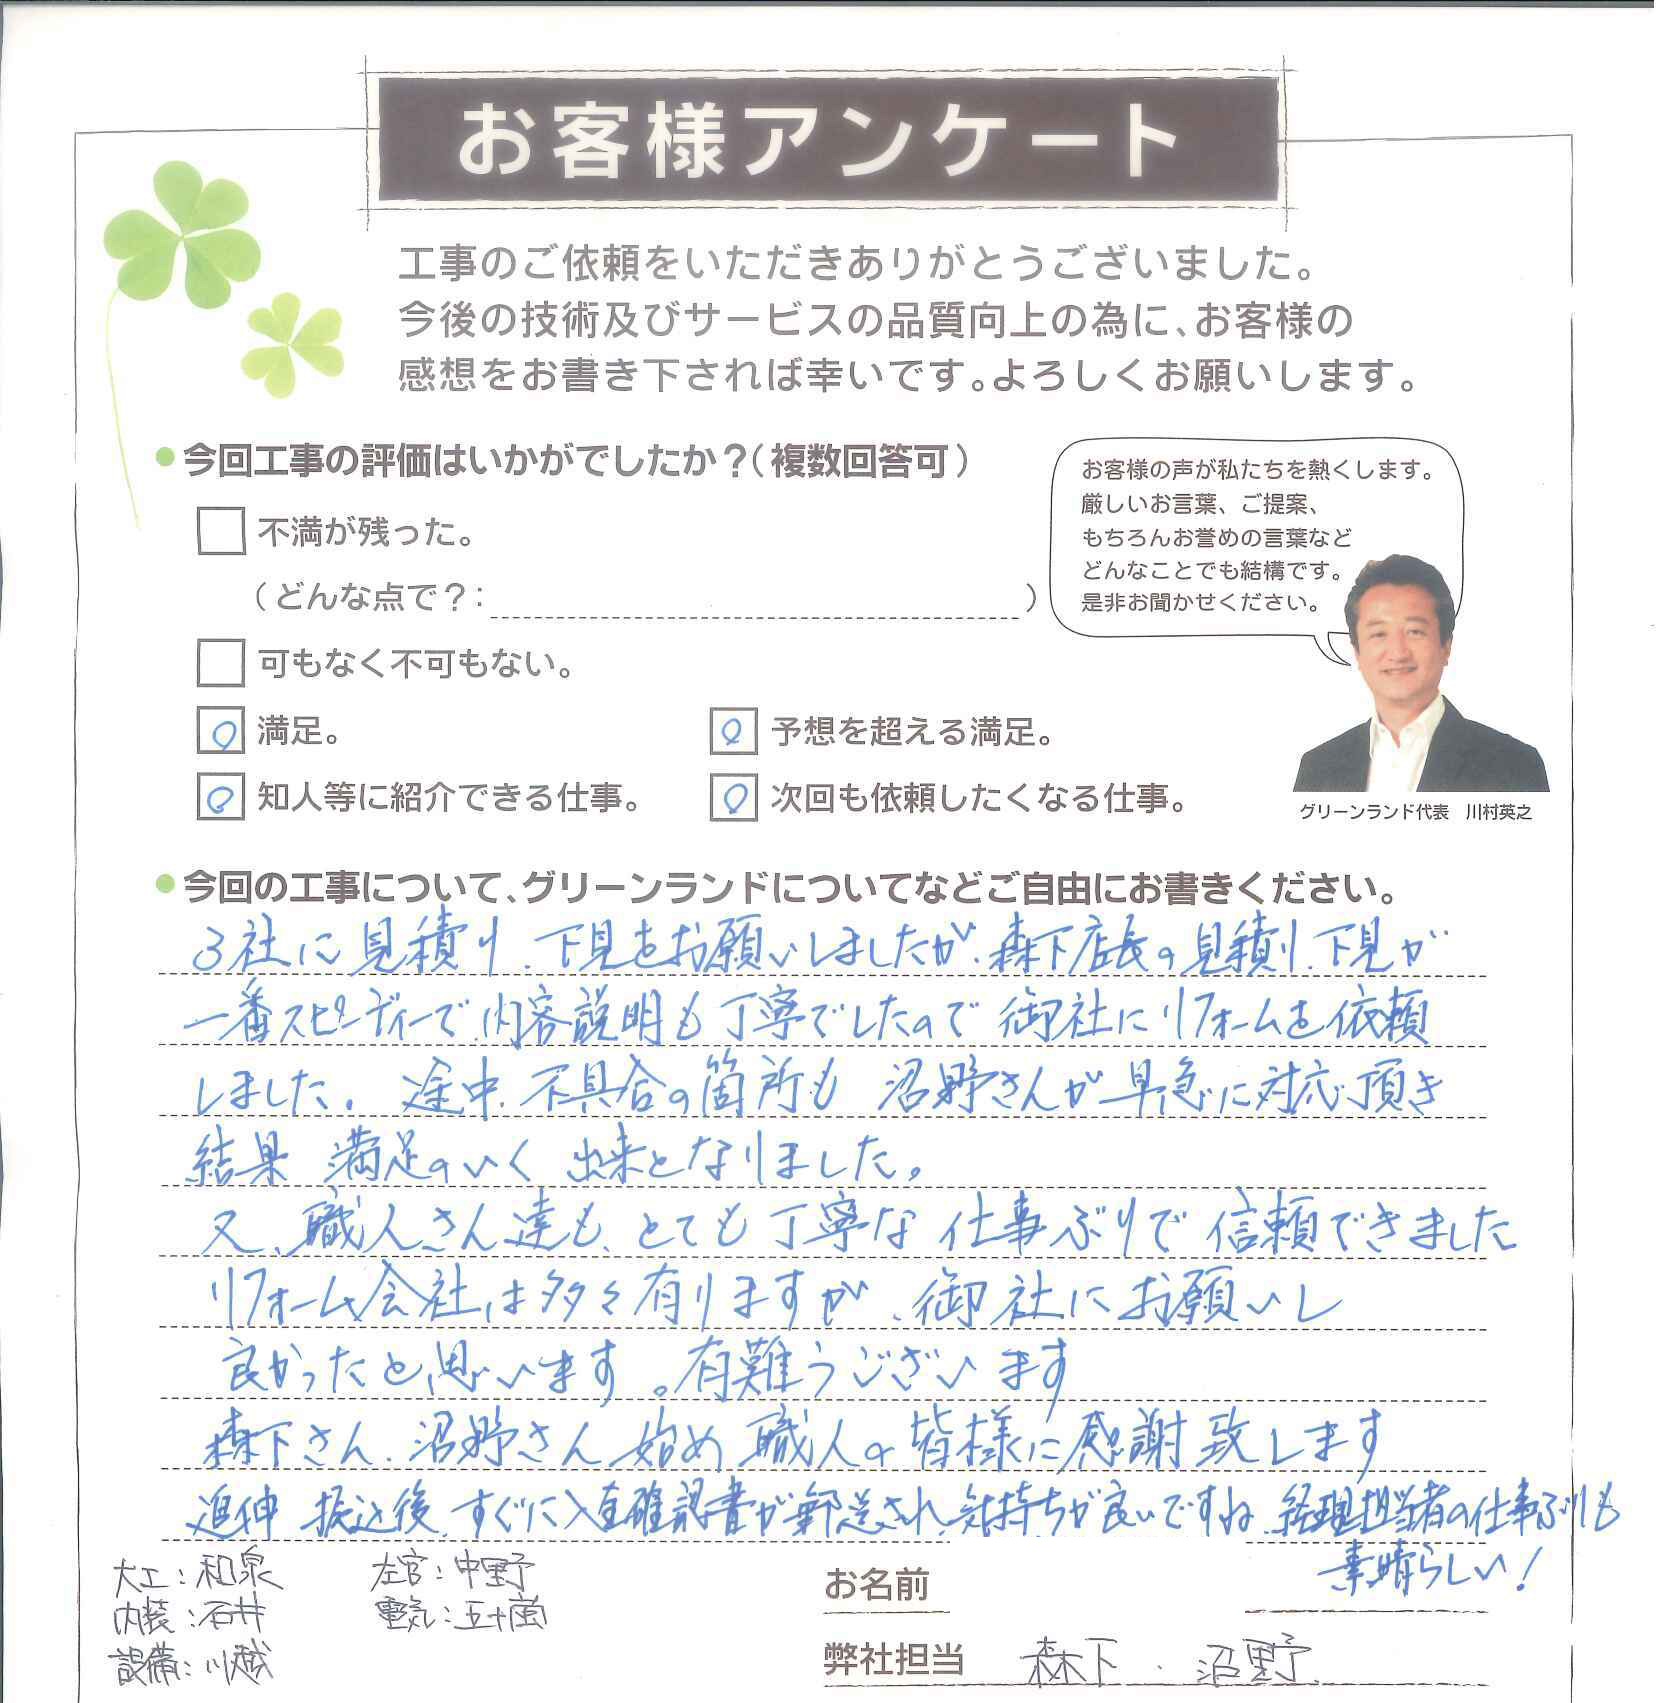 お客様アンケート
工事のご依頼をいただきありがとうございました。
今後の技術及びサービスの品質向上の為に、お客様の
感想をお書き下されば幸いです。よろしくお願いします。
今回工事の評価はいかがでしたか？(複数回答可)
不満が残った。
(どんな点で？: )
可もなく不可もない。
満足。
予想を超える満足。
知人等に紹介できる仕事。
次回も依頼したくなる仕事。
お客様の声が私たちを熱くします。
厳しいお言葉、ご提案、
もちろんお誉めの言葉など
どんなことでも結構です。
是非お聞かせください。
グリーンランド代表 川村英之
今回の工事について、グリーンランドについてなどご自由にお書きください。
3社に見積り、下見をお願いしましたが、森下店長の見積り、下見が
一番スピーディーで、内容説明も丁寧でしたので御社にリフォームを依頼
しました。途中、不具合の箇所も沼野さんが早急に対応頂き
結果 満足のいく出来となりました。
又、職人さん達も、とても丁寧な仕事ぶりで信頼できました
リフォーム会社は多々有りますが、御社にお願いし
良かったと思います。有難うございます
森下さん、沼野さん始め職人の皆様に感謝致します
追伸 振込後、すぐに入金確認書が郵送され、気持ちが良いですね、経理担当者の仕事ぶりも
素晴らしい！
大工：和泉
左官：中野
内装：石井
電気：五十嵐
設備：川越
お名前
弊社担当 森下、沼野